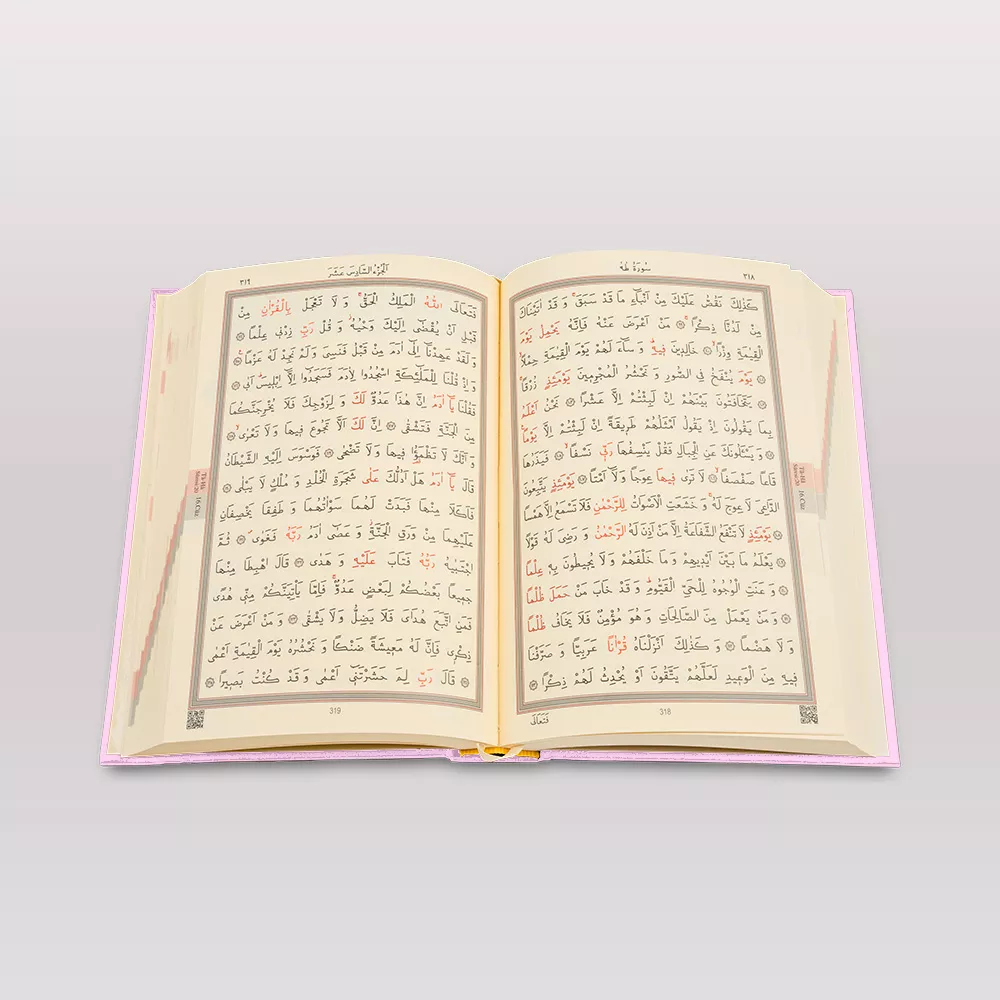 ٣١٨ سُورَةُ طٰهٰ
كَذٰلِكَ نَقُصُّ عَلَيْكَ مِنْ اَنْبَٓاءِ مَا قَدْ سَبَقَۚ وَ قَدْ اٰتَيْنَاكَ
مِنْ لَدُنَّا ذِكْرًاۚ ۝ مَنْ اَعْرَضَ عَنْهُ فَاِنَّهُ يَحْمِلُ يَوْمَ
الْقِيٰمَةِ وِزْرًاۙ ۝ خَالِدِينَ فِيهِۜ وَ سَٓاءَ لَهُمْ يَوْمَ الْقِيٰمَةِ حِمْلًاۙ
۝ يَوْمَ يُنْفَخُ فِي الصُّورِ وَ نَحْشُرُ الْمُجْرِمِينَ يَوْمَئِذٍ زُرْقًاۚ
۝ يَتَخَافَتُونَ بَيْنَهُمْ اِنْ لَبِثْتُمْ اِلَّا عَشْرًا ۝ نَحْنُ اَعْلَمُ
بِمَا يَقُولُونَ اِذْ يَقُولُ اَمْثَلُهُمْ طَرِيقَةً اِنْ لَبِثْتُمْ اِلَّا يَوْمًا۟
۝ وَ يَسْـَٔلُونَكَ عَنِ الْجِبَالِ فَقُلْ يَنْسِفُهَا رَبِّي نَسْفًاۙ ۝ فَيَذَرُهَا
قَاعًا صَفْصَفًاۙ ۝ لَا تَرٰى فِيهَا عِوَجًا وَ لَٓا اَمْتًاۜ ۝ يَوْمَئِذٍ يَتَّبِعُونَ
الدَّاعِيَ لَا عِوَجَ لَهُۚ وَ خَشَعَتِ الْاَصْوَاتُ لِلرَّحْمٰنِ فَلَا تَسْمَعُ اِلَّا هَمْسًا
۝ يَوْمَئِذٍ لَا تَنْفَعُ الشَّفَاعَةُ اِلَّا مَنْ اَذِنَ لَهُ الرَّحْمٰنُ وَ رَضِيَ لَهُ قَوْلًا
۝ يَعْلَمُ مَا بَيْنَ اَيْدِيهِمْ وَ مَا خَلْفَهُمْ وَ لَا يُحِيطُونَ بِهِ عِلْمًا
۝ وَ عَنَتِ الْوُجُوهُ لِلْحَيِّ الْقَيُّومِۜ وَ قَدْ خَابَ مَنْ حَمَلَ ظُلْمًا
۝ وَ مَنْ يَعْمَلْ مِنَ الصَّالِحَاتِ وَ هُوَ مُؤْمِنٌ فَلَا يَخَافُ ظُلْمًا
وَ لَا هَضْمًا ۝ وَ كَذٰلِكَ اَنْزَلْنَاهُ قُرْاٰنًا عَرَبِيًّا وَ صَرَّفْنَا
فِيهِ مِنَ الْوَعِيدِ لَعَلَّهُمْ يَتَّقُونَ اَوْ يُحْدِثُ لَهُمْ ذِكْرًا ۝
318 فَتَعَالَى
Tâ-Hâ
Sûresi 20
16.Cüz
٣١٩ اَلْجُزْءُ السَّادِسَ عَشَرَ
فَتَعَالَى اللّٰهُ الْمَلِكُ الْحَقُّۚ وَ لَا تَعْجَلْ بِالْقُرْاٰنِ مِنْ
قَبْلِ اَنْ يُقْضٰٓى اِلَيْكَ وَحْيُهُۘ وَ قُلْ رَبِّ زِدْنِي عِلْمًا ۝
وَ لَقَدْ عَهِدْنَٓا اِلٰٓى اٰدَمَ مِنْ قَبْلُ فَنَسِيَ وَلَمْ نَجِدْ لَهُ عَزْمًا۟ ۝
وَ اِذْ قُلْنَا لِلْمَلٰٓئِكَةِ اسْجُدُوا لِاٰدَمَ فَسَجَدُٓوا اِلَّٓا اِبْلِيسَۜ اَبٰى ۝
فَقُلْنَا يَٓا اٰدَمُ اِنَّ هٰذَا عَدُوٌّ لَكَ وَ لِزَوْجِكَ فَلَا يُخْرِجَنَّكُمَا
مِنَ الْجَنَّةِ فَتَشْقٰى ۝ اِنَّ لَكَ اَلَّا تَجُوعَ فِيهَا وَ لَا تَعْرٰىۙ ۝
وَ اَنَّكَ لَا تَظْمَؤُا فِيهَا وَ لَا تَضْحٰى ۝ فَوَسْوَسَ اِلَيْهِ الشَّيْطَانُ
قَالَ يَٓا اٰدَمُ هَلْ اَدُلُّكَ عَلٰى شَجَرَةِ الْخُلْدِ وَ مُلْكٍ لَا يَبْلٰى ۝
فَاَكَلَا مِنْهَا فَبَدَتْ لَهُمَا سَوْاٰتُهُمَا وَ طَفِقَا يَخْصِفَانِ
عَلَيْهِمَا مِنْ وَرَقِ الْجَنَّةِۘ وَ عَصٰٓى اٰدَمُ رَبَّهُ فَغَوٰىۖ ۝ ثُمَّ
اجْتَبٰيهُ رَبُّهُ فَتَابَ عَلَيْهِ وَ هَدٰى ۝ قَالَ اهْبِطَا مِنْهَا
جَمِيعًا بَعْضُكُمْ لِبَعْضٍ عَدُوٌّۚ فَاِمَّا يَأْتِيَنَّكُمْ مِنِّي هُدًى
فَمَنِ اتَّبَعَ هُدَايَ فَلَا يَضِلُّ وَ لَا يَشْقٰى ۝ وَ مَنْ اَعْرَضَ عَنْ
ذِكْرِي فَاِنَّ لَهُ مَعِيشَةً ضَنْكًا وَ نَحْشُرُهُ يَوْمَ الْقِيٰمَةِ اَعْمٰى
۝ قَالَ رَبِّ لِمَ حَشَرْتَنِٓي اَعْمٰى وَ قَدْ كُنْتُ بَصِيرًا ۝
319
Tâ-Hâ
Sûresi 20
16.Cüz